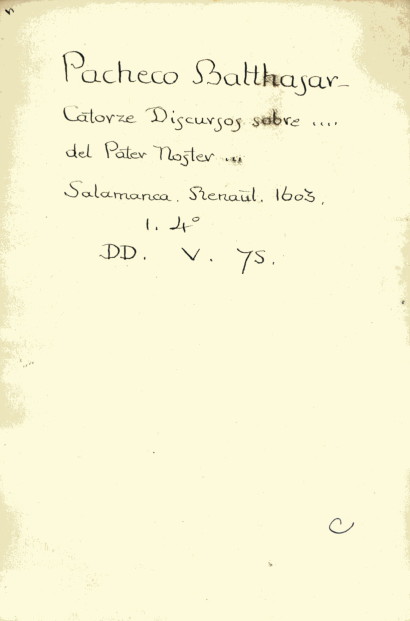 Pacheco Balthasar_
Catorze Discursos sobre ....
del Pater Noster ...
Salamanca. Renaut. 1603.
1. 4º
DD. V. 75.
C